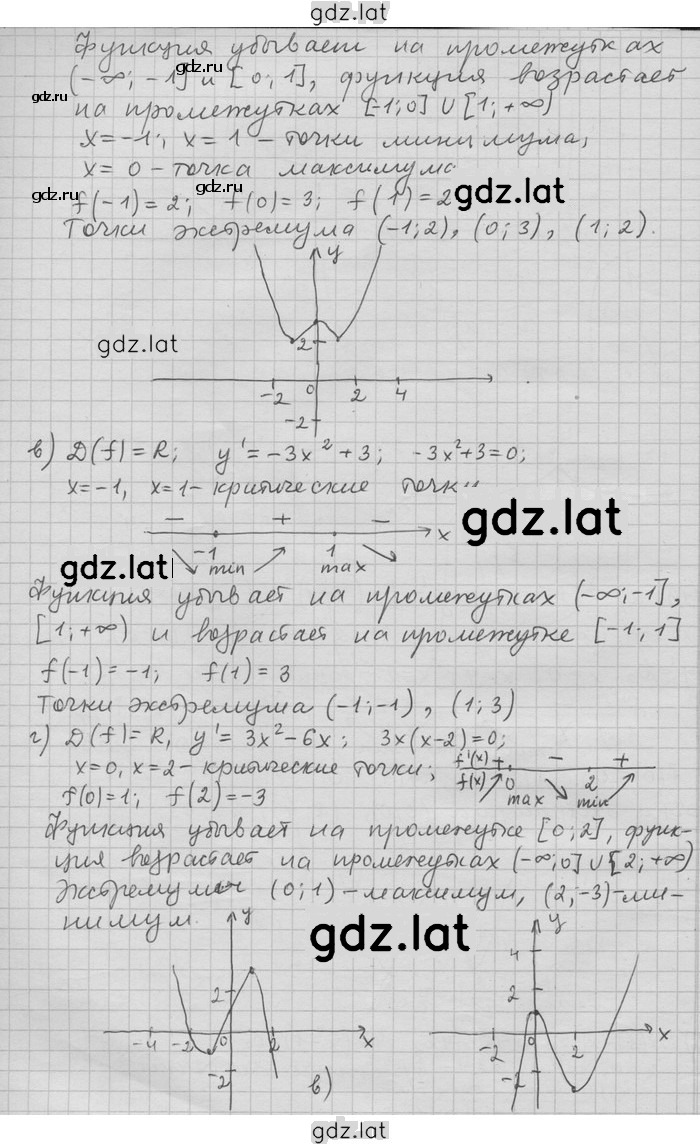 gdz.lat
Функция убывает на промежутках
(-∞; -1] и [0; 1], функция возрастает
gdz.ru
gdz.ru
на промежутках [-1; 0] ∪ [1; +∞)
x=-1; x=1 - точки минимума;
x=0 - точка максимума
gdz.ru
gdz.ru
gdz.lat
f(-1)=2; f(0)=3; f(1)=2
Точки экстремума (-1; 2), (0; 3), (1; 2).
y
gdz.lat
2
-2 0 2 4
-2
в) D(f)=R; y'=-3x²+3; -3x²+3=0;
x=-1, x=1- критические точки
gdz.lat
- + - x
-1 1
min max
gdz.lat
Функция убывает на промежутках (-∞; -1],
[1; +∞) и возрастает на промежутке [-1; 1]
f(-1)=-1; f(1)=3
Точки экстремума (-1; -1), (1; 3)
г) D(f)=R, y'=3x²-6x; 3x(x-2)=0;
x=0, x=2- критические точки;
f'(x) + - +
f(x) 0 2
max min
f(0)=1; f(2)=-3
Функция убывает на промежутке [0; 2], функ-
ция возрастает на промежутках (-∞; 0] ∪ [2; +∞)
(0; 1) - максимум, (2, -3) - ми-
нимум.
gdz.lat
y
2
-4 -2 0 2 x
-2
в)
y
4
2
-2 0 2 x
-2
gdz.lat